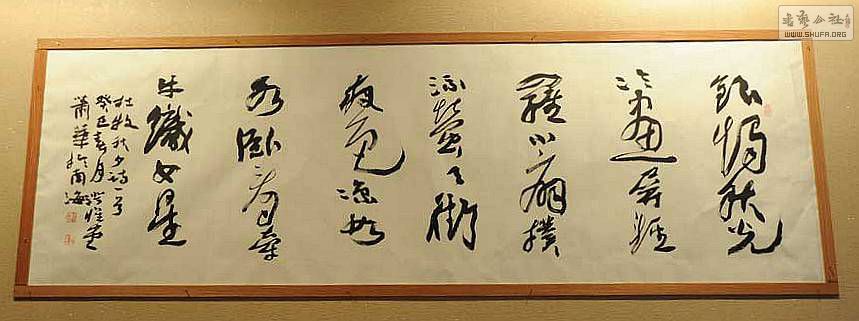 銀燭秋光
冷畫屏輕
羅小扇撲
流螢天街
夜色涼如
水臥看牽
牛織女星
杜牧秋夕詩一首
癸巳春月
蕭華於南海
書藝公社
WWW.SHUFA.ORG